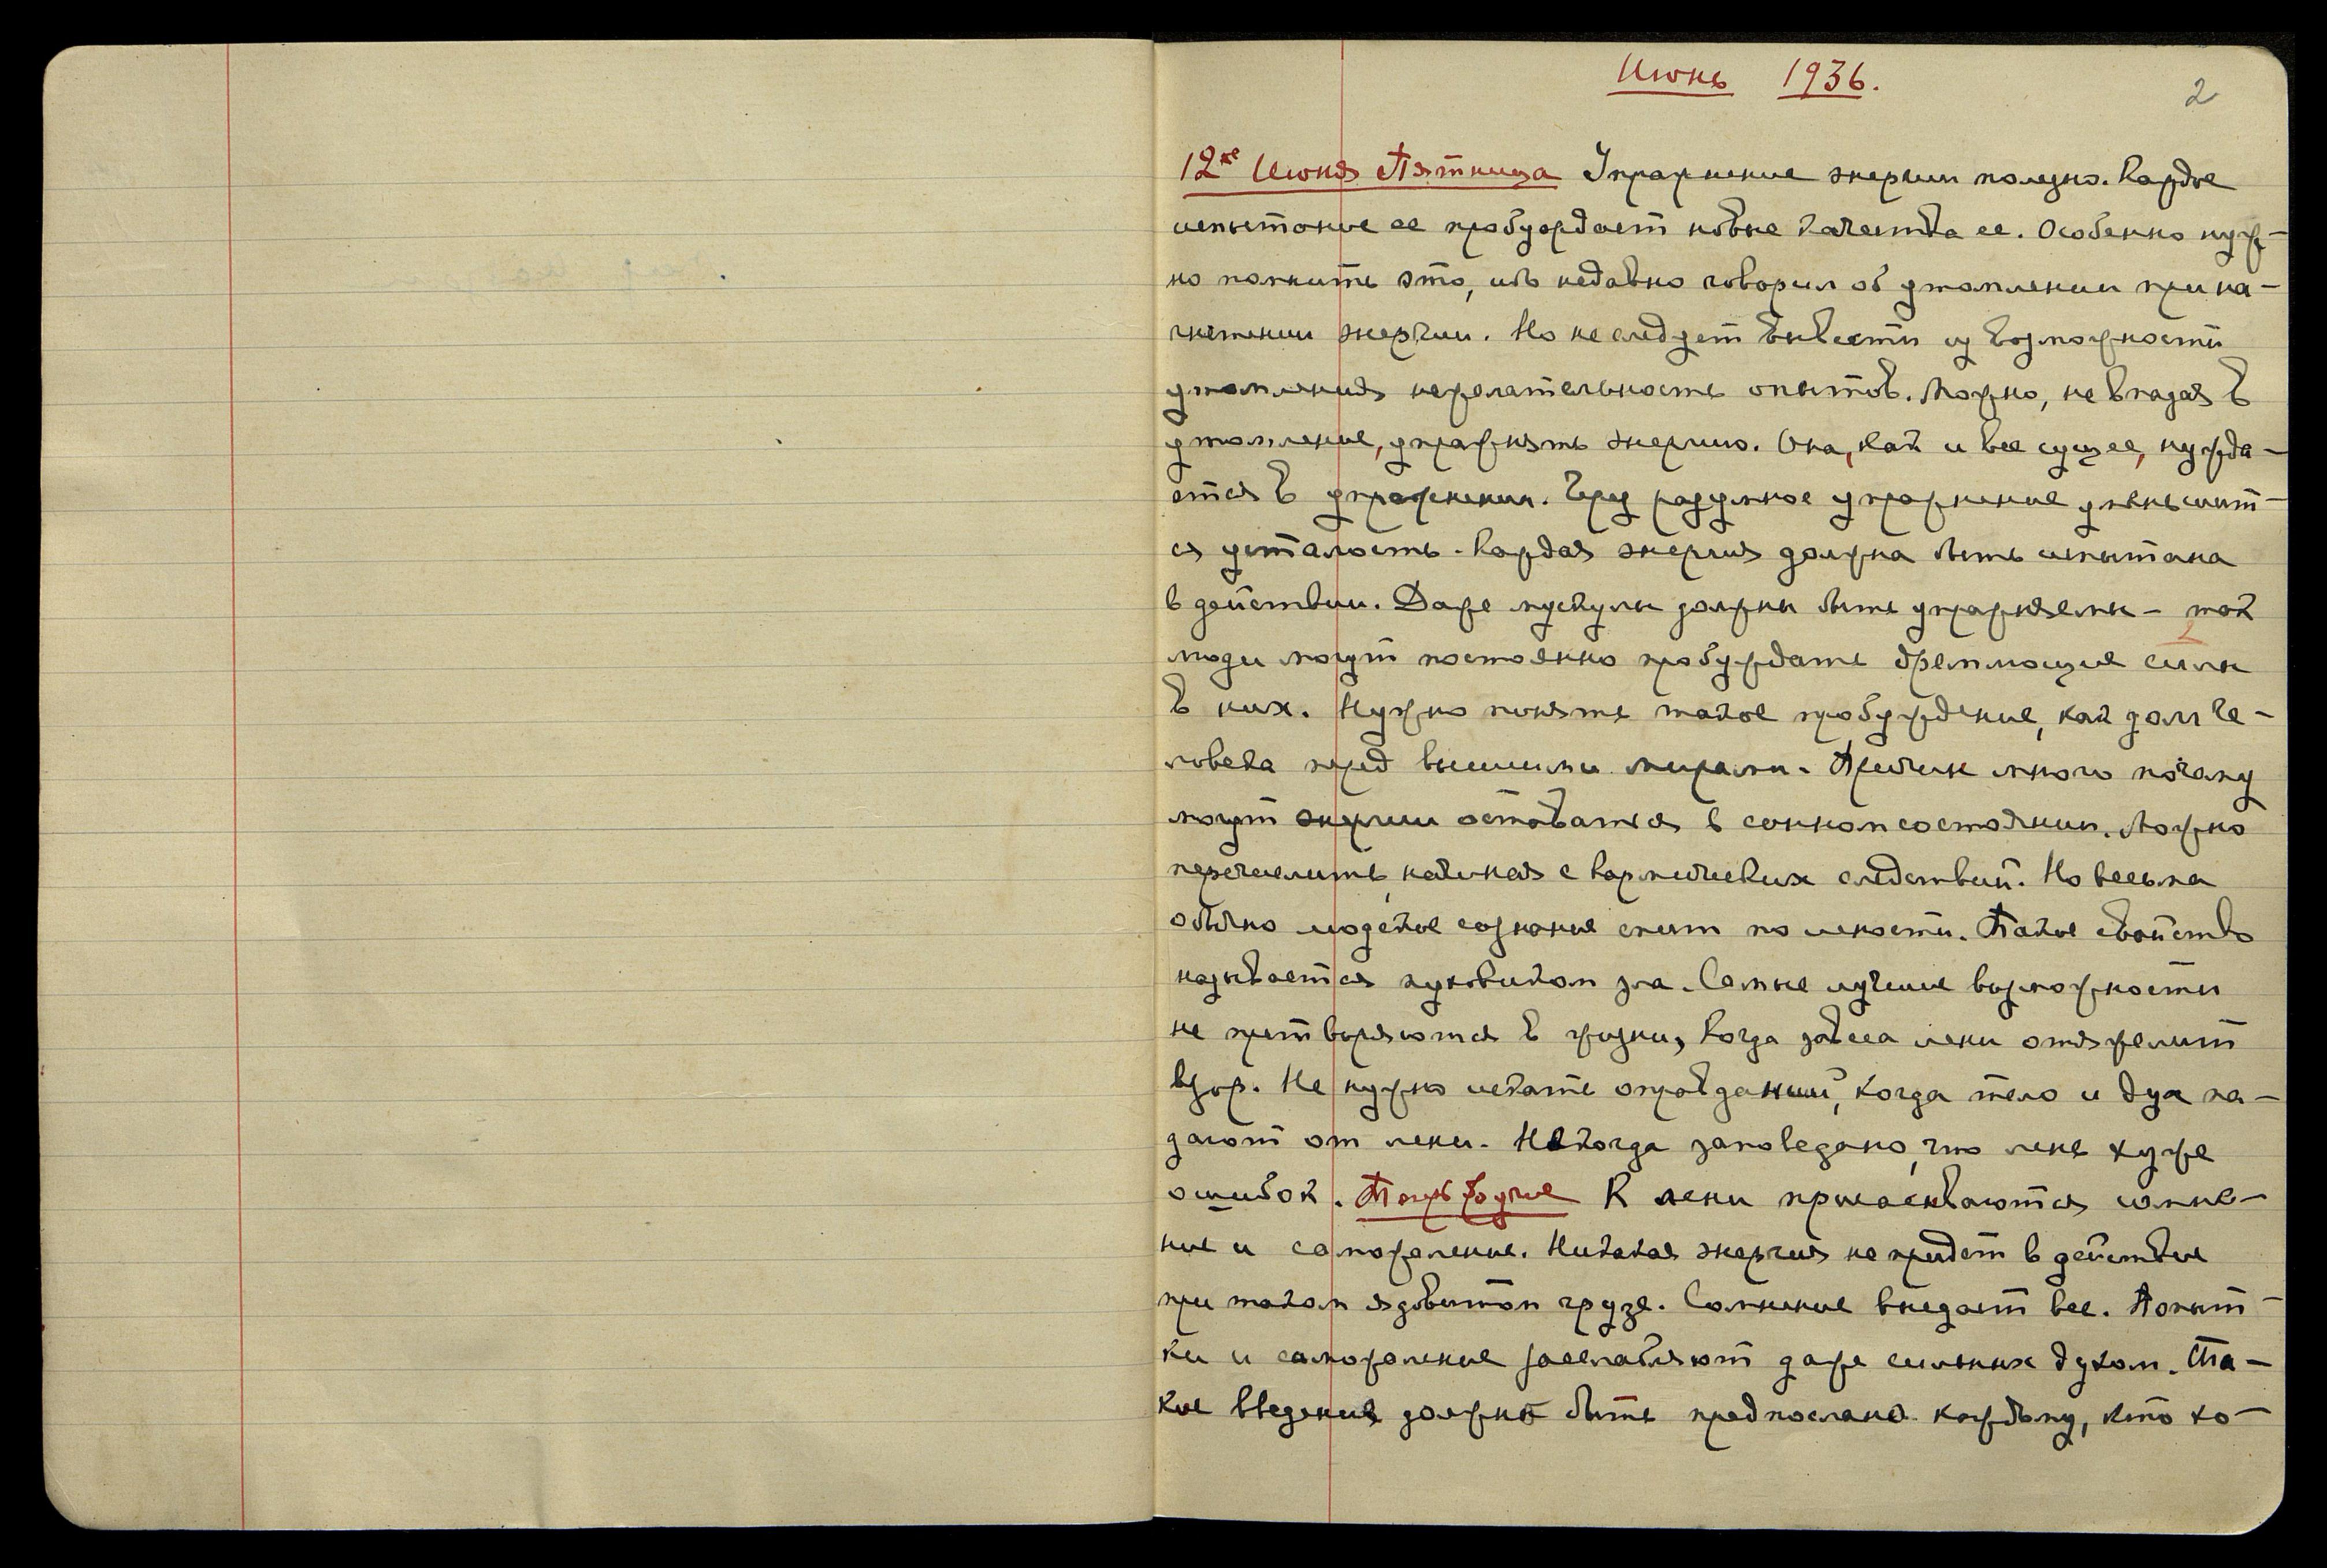 Июнь 1936.
2
12ое Июня Пятница Упражнение энергии полезно. Каждое
испытание ее пробуждает новые качества ее. Особенно нуж-
но помнить это, ибо недавно говорил об утомлении при на-
гнетении энергии. Но не следует вывести из возможности
утомления нежелательность опытов. Можно, не впадая в
утомление, упражнять энергию. Она, как и все сущее, нужда-
ется в упражнении. Чрез разумное упражнение уменьшит-
ся усталость. Каждая энергия должна быть испытана
в действии. Даже мускулы должны быть упражняемы - так
люди могут постоянно пробуждать дремлющие силы
в них. Нужно понять такое пробуждение, как долг че-
ловека пред высшими мирами. Причин много почему
могут энергии оставаться в сонном состоянии. Можно
перечислить, начиная с кармических следствий. Но весьма
обычно людское сознание спит по лености. Такое свойство
называется мужовиком зла. Самые лучшие возможности
не претворяются в жизни, когда завеса лени отяжелит
взор. Не нужно искать оправданий, когда тело и дух па-
дают от лени. Некогда заповедано, что лень хуже
ошибок. Позже К лени присасываются сомне-
ние и саможаление. Никакая энергия не придет в действие
при таком ядовитом грузе. Сомнение въедает все. Попыт-
ки и саможаление расслабляют даже сильных духом. Та-
кие введения должны быть предпосланы каждому, кто хо-